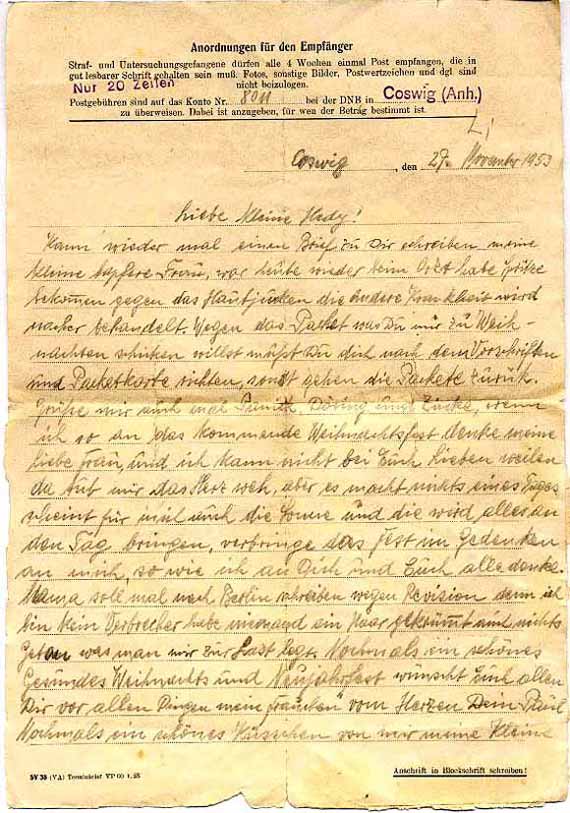 Anordnungen für den Empfänger
Straf- und Untersuchungsgefangene dürfen alle 4 Wochen einmal Post empfangen, die in
gut lesbarer Schrift gehalten sein muß. Fotos, sonstige Bilder, Postwertzeichen und dgl. sind
nicht beizulegen.
Nur 20 Zeilen
Postgebühren sind auf das Konto Nr. 8011 bei der DNB in Coswig (Anh.)
zu überweisen. Dabei ist anzugeben, für wen der Betrag bestimmt ist.
Coswig, den 29. November 1953
Liebe kleine Hedy!
Kann wieder mal einen Brief zu Dir schreiben meine
kleine tapfere Frau, war heute wieder beim Arzt habe
bekommen gegen das Hautjucken die andere Krankheit wird
nacher behandelt. Wegen das Packet was Du mir zu Weih-
nachten schicken willst mußt Du dich nach dem Vorschriften
und Packetkarte richten, sonst gehen die Packete zurück.
Grüße mir auch mal Döring und wenn
ich so an das kommende Weihnachtsfest denke meine
liebe Frau, und ich kann nicht bei Euch Lieben weilen
da tut mir das Herz weh, aber es macht nichts eines Tages
scheint für mich auch die Sonne und die wird alles an
den Tag bringen, verbringe das Fest im Gedenken
an mich, so wie ich an Dich und Euch alle denke.
Mama soll mal nach Berlin schreiben wegen Revision denn ich
bin kein Verbrecher habe niemand ein Haar gekrümmt auch nichts
getan was man mir zur Last legt. Nochmals ein schönes
Gesundes Weihnachts und Neujahrfest wünscht Euch allen
Dir vor allen Dingen mein Frauchen vom Herzen Dein Paul
Nochmals ein schönes Küsschen von mir meine Kleine
SV 38 (VA) Terminbrief VP
Anschrift in Blockschrift schreiben!